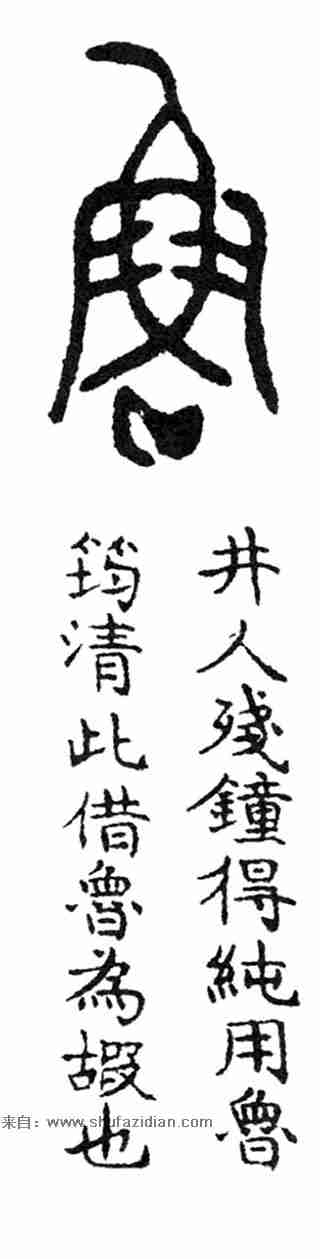 魯
井人殘鐘得純用魯
筠清此借魯為嘏也
来自：www.shufazidian.com